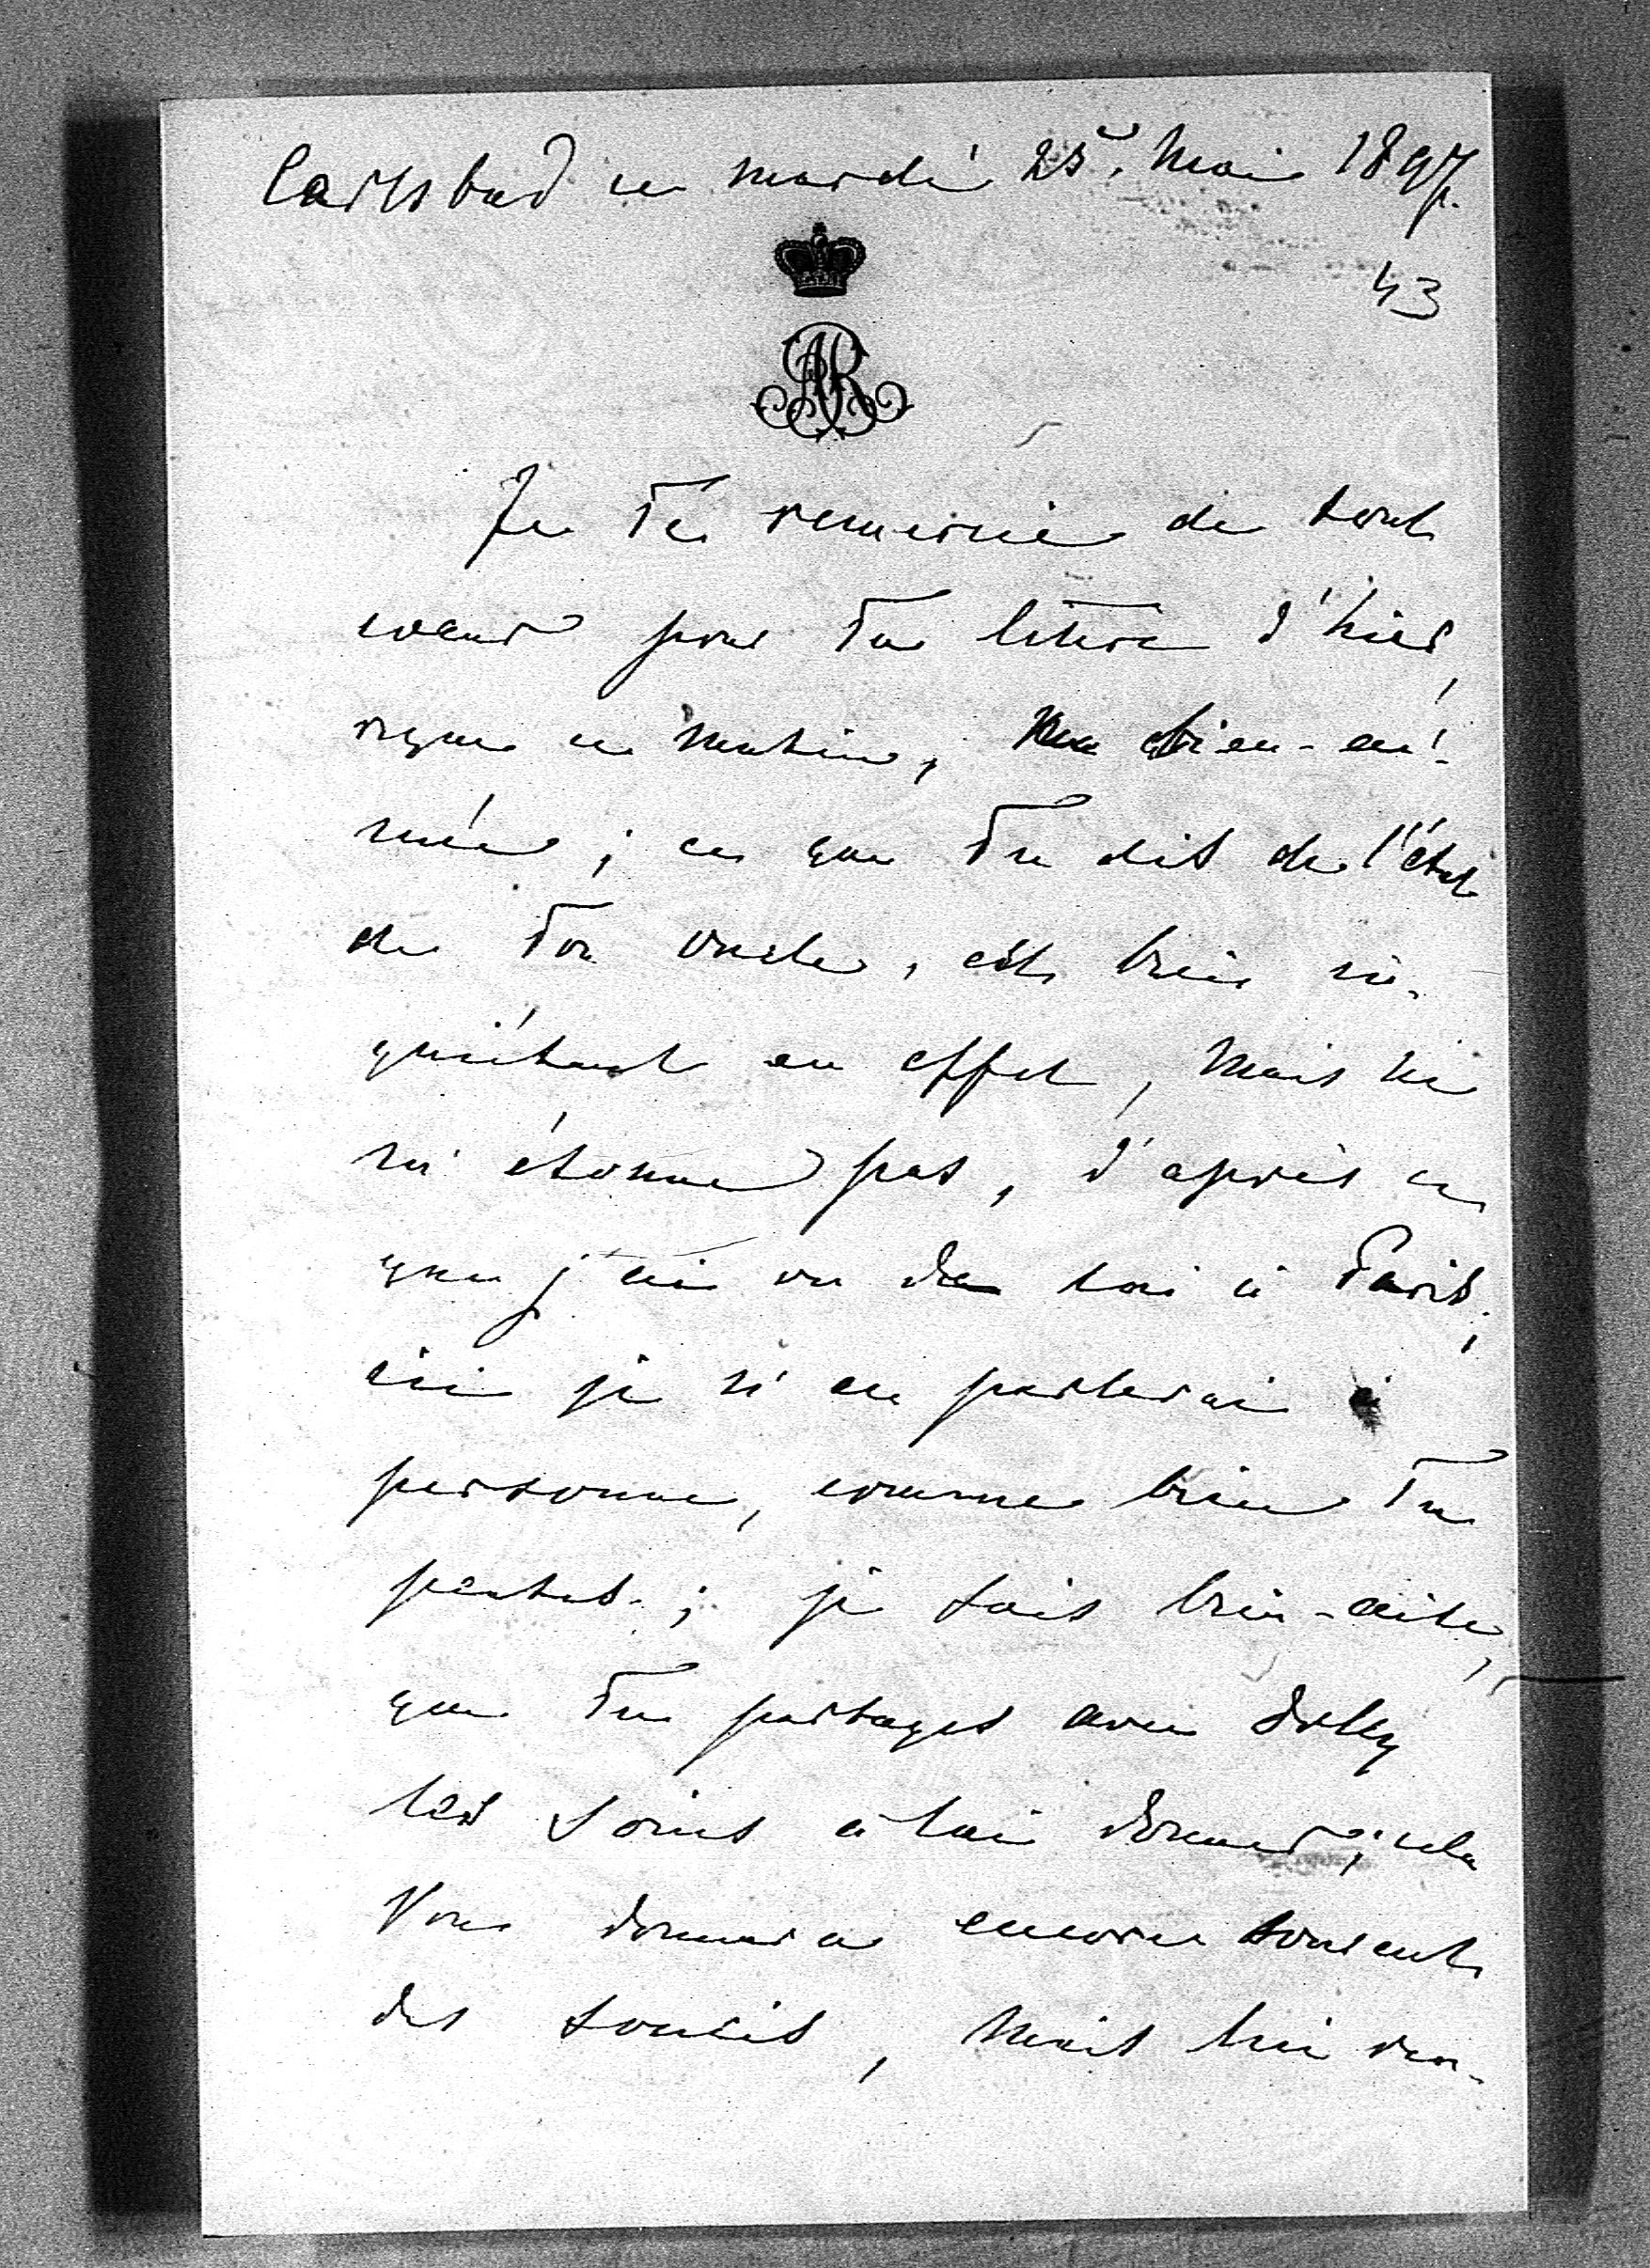 Carlsbad ce mardi 25. Mai 1897.
43
Je Te remercie de tout
coeur pour Ta lettre d'hier,
reçue ce matin, Ma bien-ai-
mée ; ce que Tu dis de l'état
de Ton oncle, est bien in-
quiétant en effet, mais ne
m'étonne pas, d'après ce
que j'ai vu de lui à Paris;
ici je n'en parlerai à
personne, comme bien Tu
penses ; je suis bien-aise,
que Tu partages avec Dolly
les soins à lui donner ; cela
Vous donnera encore souvent
des soucis, mais lui ren-